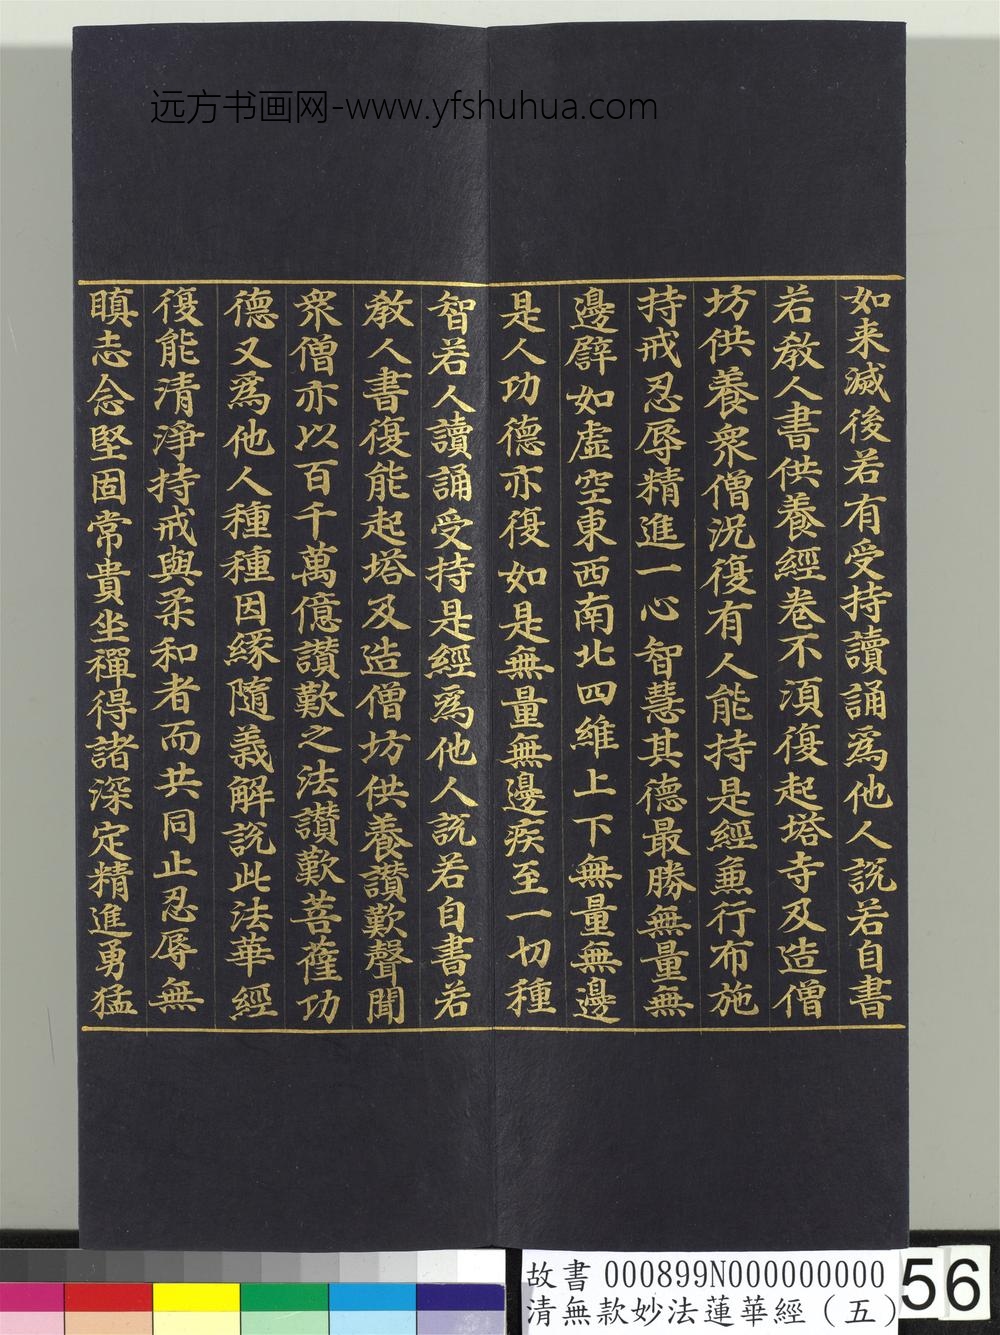 远方书画网-www.yfshuhua.com
如来滅後若有受持讀誦為他人說若自書
若教人書供養經卷不須復起塔寺及造僧
坊供養衆僧況復有人能持是經兼行布施
持戒忍辱精進一心智慧其德最勝無量無
邊譬如虛空東西南北四維上下無量無邊
是人功德亦復如是無量無邊疾至一切種
智若人讀誦受持是經為他人說若自書若
教人書復能起塔及造僧坊供養讃歎聲聞
衆僧亦以百千萬億讃歎之法讃歎菩薩功
德又為他人種種因緣隨義解說此法華經
復能清淨持戒與柔和者而共同止忍辱無
瞋志念堅固常貴坐禪得諸深定精進勇猛
故書 000899N000000000
清無款妙法蓮華經（五）
56